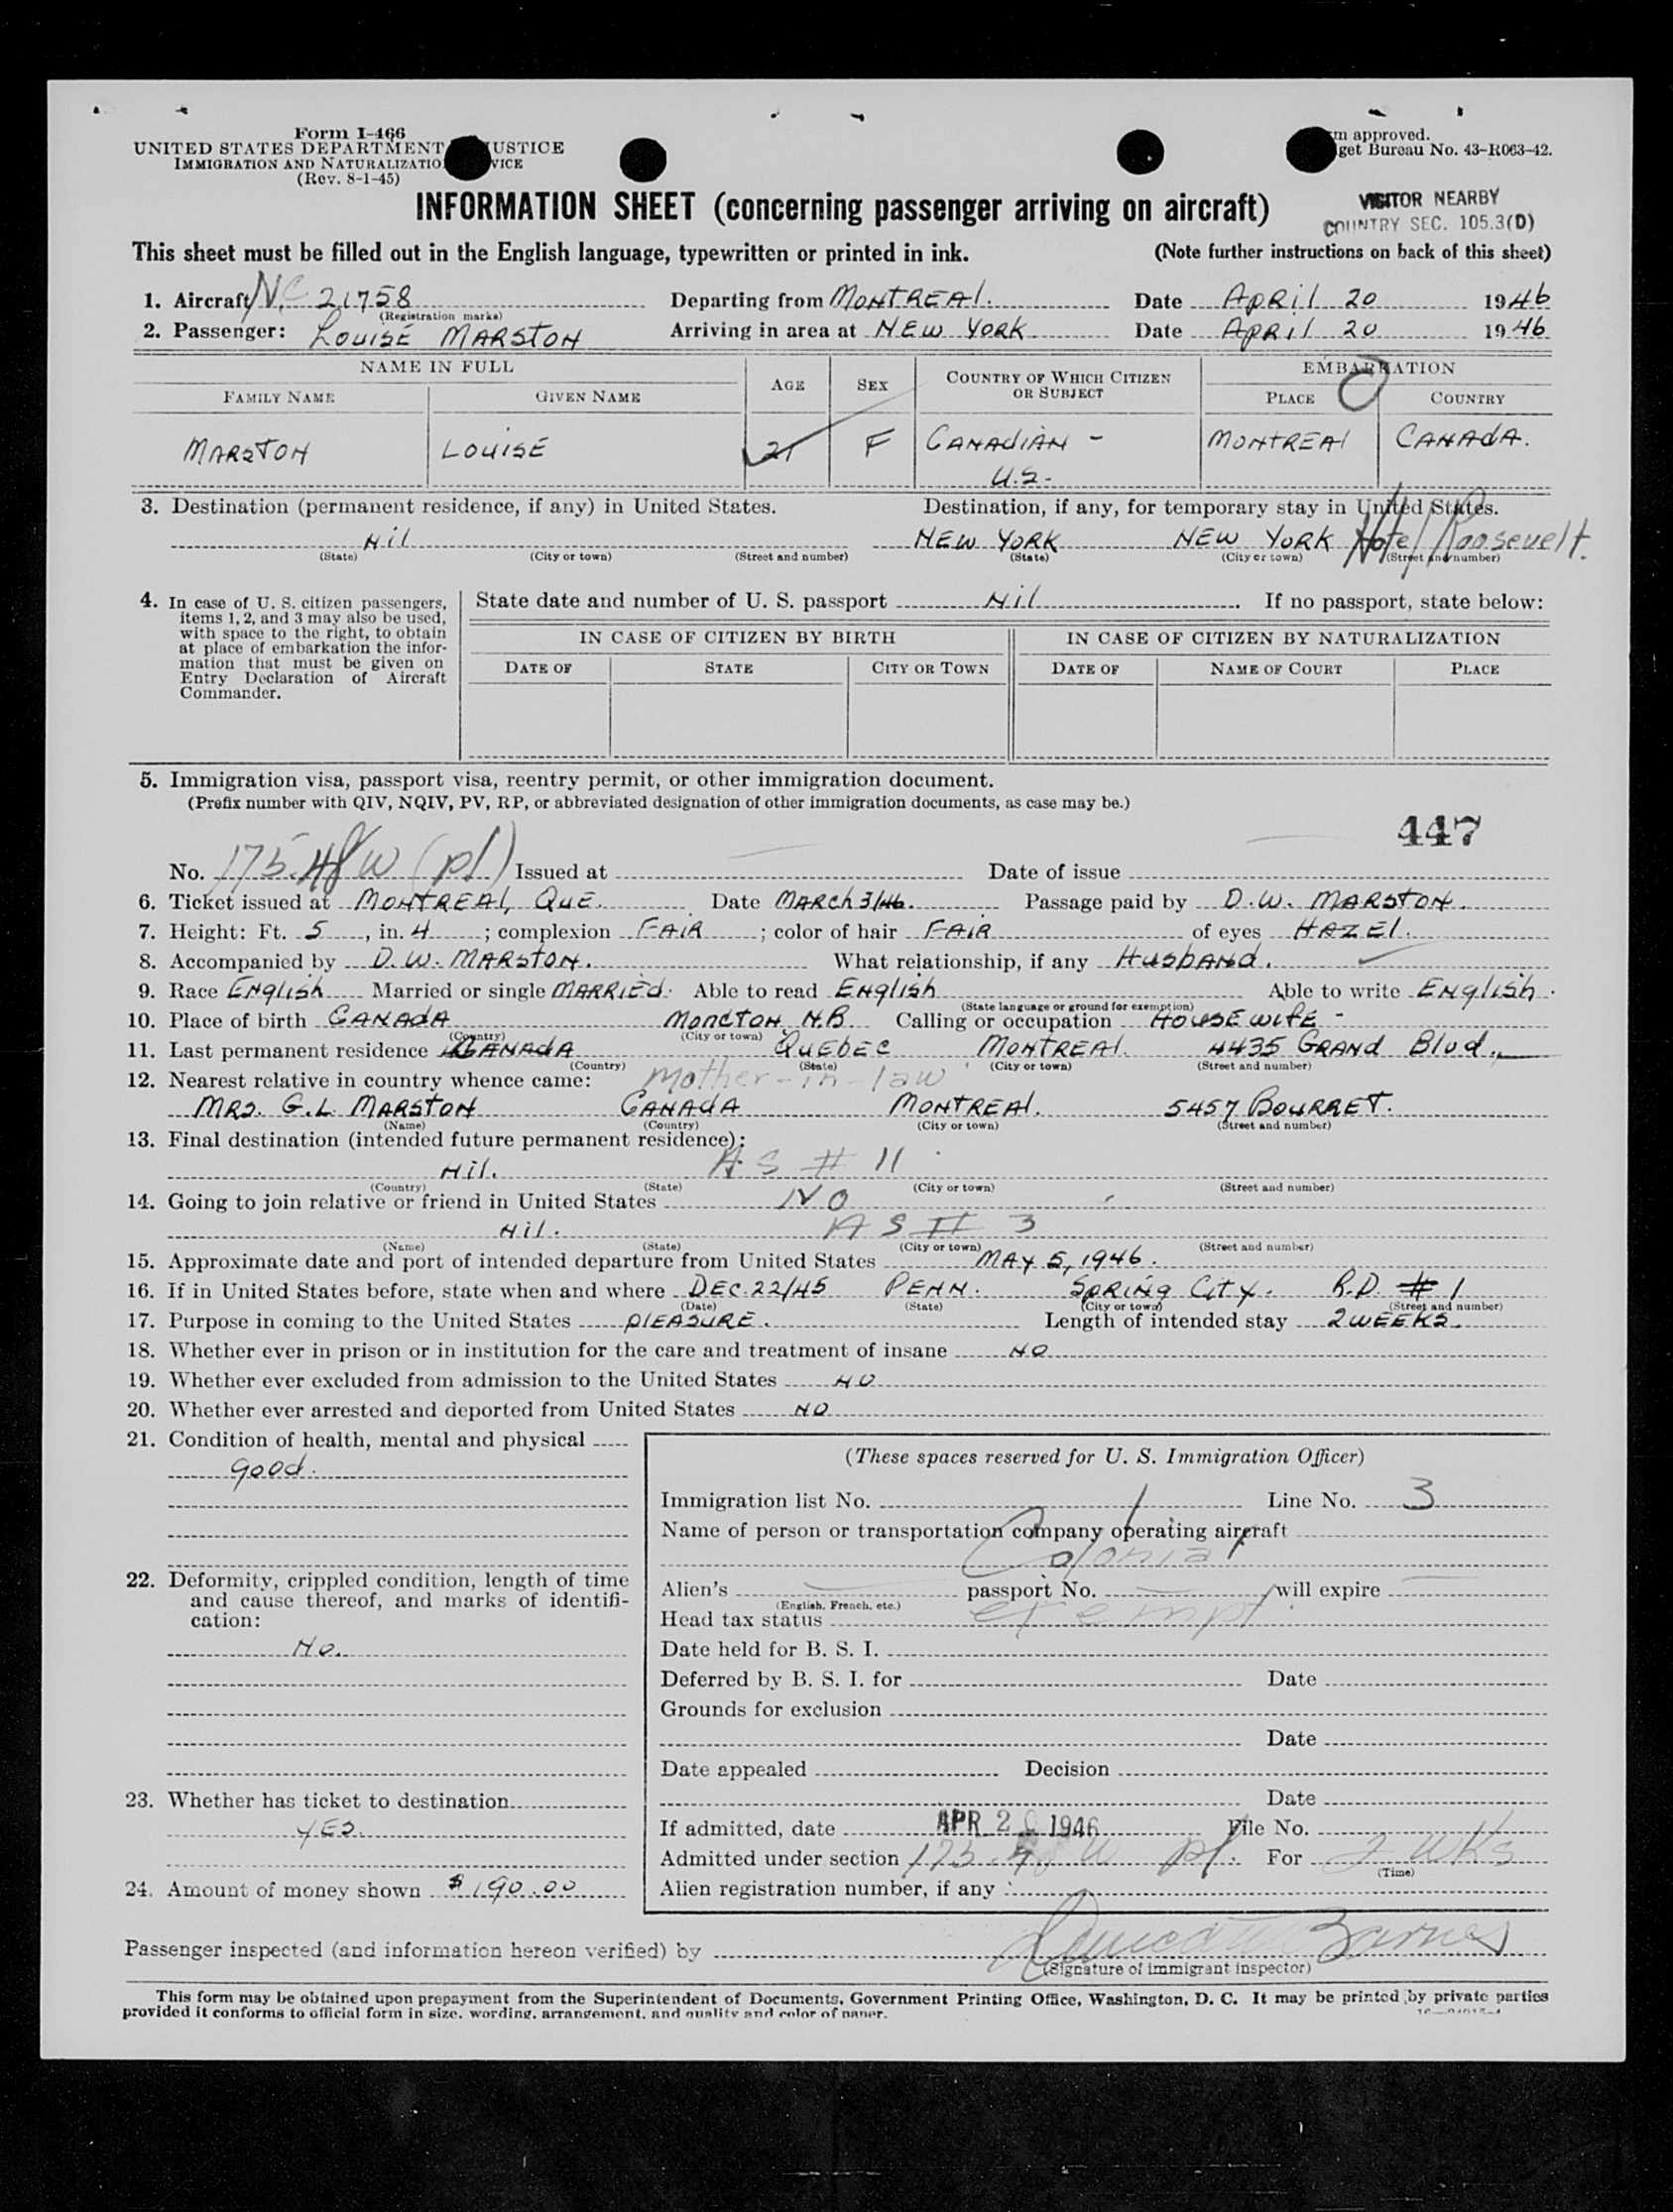 Form I-466
UNITED STATES DEPARTMENT JUSTICE
IMMIGRATION AND NATURALIZATIO VICE
(Rev. 8-1-45)
m approved.
get Bureau No. 43-R063-42.
INFORMATION SHEET (concerning passenger arriving on aircraft)
VISITOR NEARBY
COUNTRY SEC. 105.3(D)
This sheet must be filled out in the English language, typewritten or printed in ink. (Note further instructions on back of this sheet)
1. Aircraft NC 21758 Departing from MONTREAL. Date APRIL 20 1946
(Registration marks)
2. Passenger: LOUISE MARSTON Arriving in area at NEW YORK Date APRIL 20 1946
NAME IN FULL AGE SEX COUNTRY OF WHICH CITIZEN OR SUBJECT EMBARKATION
FAMILY NAME GIVEN NAME PLACE COUNTRY
MARSTON LOUISE 21 F CANADIAN - MONTREAL CANADA.
U.S.
3. Destination (permanent residence, if any) in United States. Destination, if any, for temporary stay in United States.
Nil NEW YORK NEW YORK Hotel Roosevelt.
(State) (City or town) (Street and number) (State) (City or town) (Street and number)
4. In case of U. S. citizen passengers, items 1, 2, and 3 may also be used, with space to the right, to obtain at place of embarkation the information that must be given on Entry Declaration of Aircraft Commander.
State date and number of U. S. passport Nil. If no passport, state below:
IN CASE OF CITIZEN BY BIRTH IN CASE OF CITIZEN BY NATURALIZATION
DATE OF STATE CITY OR TOWN DATE OF NAME OF COURT PLACE
5. Immigration visa, passport visa, reentry permit, or other immigration document.
(Prefix number with QIV, NQIV, PV, RP, or abbreviated designation of other immigration documents, as case may be.)
447
No. 175.48W (pl) Issued at Date of issue
6. Ticket issued at MONTREAL, QUE. Date MARCH 3/46. Passage paid by D.W. MARSTON.
7. Height: Ft. 5, in. 4; complexion FAIR; color of hair FAIR of eyes HAZEL.
8. Accompanied by D.W. MARSTON. What relationship, if any HUSBAND.
9. Race ENGLISH Married or single MARRIED. Able to read ENGLISH Able to write ENGLISH.
(State language or ground for exemption)
10. Place of birth CANADA MONCTON N.B. Calling or occupation HOUSEWIFE -
(Country) (City or town)
11. Last permanent residence CANADA QUEBEC MONTREAL. 4435 GRAND Blvd.,
(Country) (State) (City or town) (Street and number)
12. Nearest relative in country whence came: Mother-in-law
MRS. G.L. MARSTON CANADA MONTREAL. 5457 BOURRET.
(Name) (Country) (City or town) (Street and number)
13. Final destination (intended future permanent residence):
Nil. AS # 11
(Country) (State) (City or town) (Street and number)
14. Going to join relative or friend in United States NO
Nil. AS # 3
(Name) (State) (City or town) (Street and number)
15. Approximate date and port of intended departure from United States MAY 5, 1946.
16. If in United States before, state when and where DEC. 22/45 PENN. SPRING CITY. R.D. # 1
(Date) (State) (City or town) (Street and number)
17. Purpose in coming to the United States PLEASURE. Length of intended stay 2 WEEKS.
18. Whether ever in prison or in institution for the care and treatment of insane NO
19. Whether ever excluded from admission to the United States NO
20. Whether ever arrested and deported from United States NO
21. Condition of health, mental and physical
good.
22. Deformity, crippled condition, length of time and cause thereof, and marks of identification:
No.
23. Whether has ticket to destination
YES.
24. Amount of money shown $190.00
(These spaces reserved for U. S. Immigration Officer)
Immigration list No. 1 Line No. 3
Name of person or transportation company operating aircraft
Colonial
Alien's passport No. will expire
(English, French, etc.)
Head tax status exempt
Date held for B. S. I.
Deferred by B. S. I. for Date
Grounds for exclusion
Date
Date appealed Decision
Date
If admitted, date APR 20 1946 File No.
Admitted under section 175.48W pl. For 2 WKS
(Time)
Alien registration number, if any
Passenger inspected (and information hereon verified) by Barnes
(Signature of immigrant inspector)
This form may be obtained upon prepayment from the Superintendent of Documents, Government Printing Office, Washington, D. C. It may be printed by private parties
provided it conforms to official form in size, wording, arrangement, and quality and color of paper.